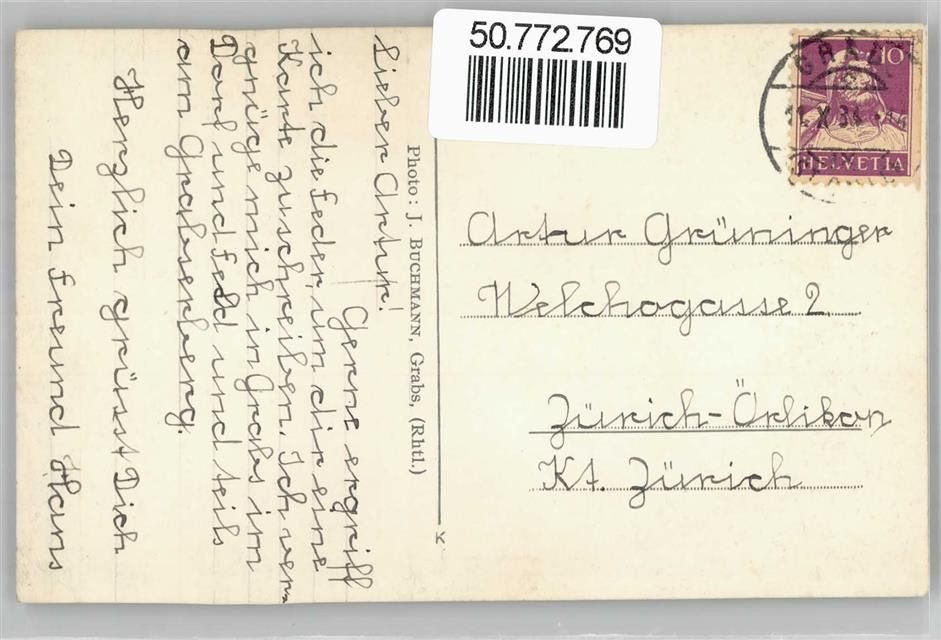 50.772.769
Lieber Artur!
Gerne ergriff
ich die Feder, um dir eine
Karte zu schreiben. Ich ver-
gnüge mich in Grabs im
Dorf und Feld und teils
am Grabserberg.
Herzlich grüsst Dich
Dein Freund Hans
Photo: J. BUCHMANN, Grabs, (Rhtl.)
K
10
HELVETIA
Artur Grüninger
Welchogasse 2.
Zürich-Örlikon
Kt. Zürich